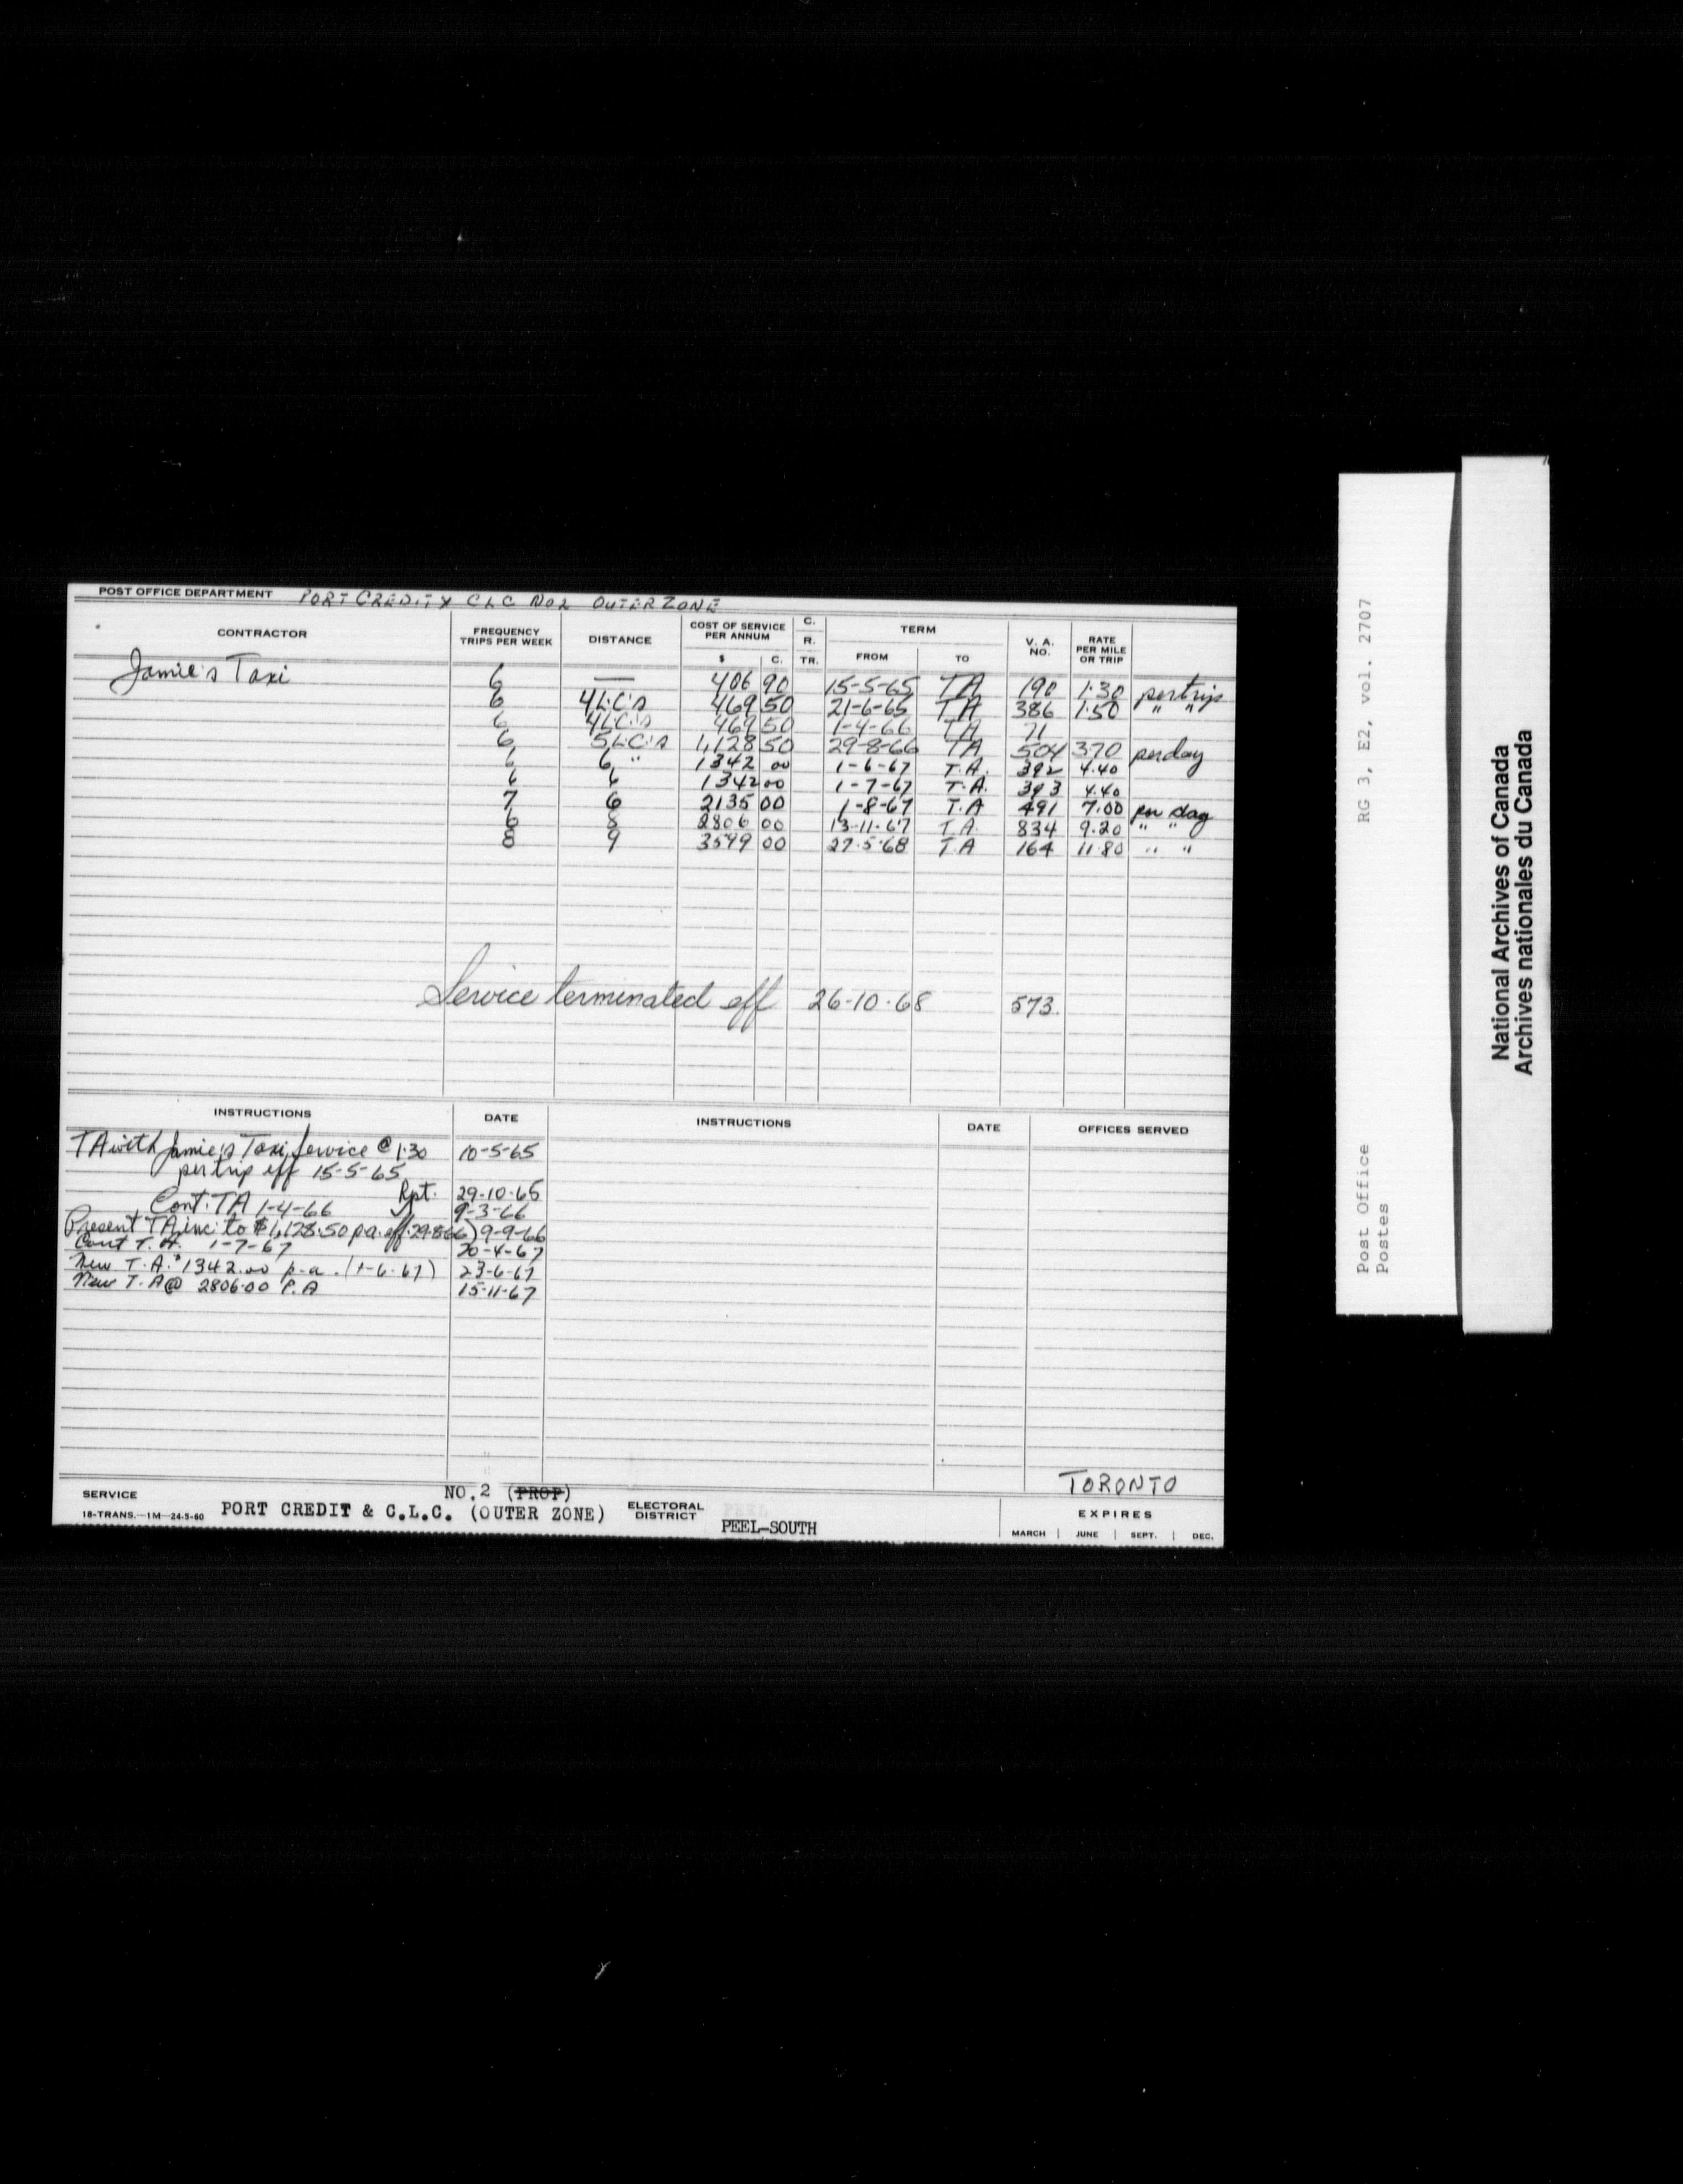 POST OFFICE DEPARTMENT PORT CREDIT & CLC NO2 OUTER ZONE
CONTRACTOR FREQUENCY TRIPS PER WEEK DISTANCE COST OF SERVICE PER ANNUM $ C. C. R. TR. TERM FROM TO V. A. NO. RATE PER MILE OR TRIP
Jamie's Taxi 6 — 406 90 15-5-65 TA 190 1.30 per trip
6 4L.C's 469 50 21-6-65 TA 386 1.50 " "
6 4L.C's 469 50 1-4-66 TA 71
6 5L.C's 1,128 50 29-8-66 TA 504 3.70 per day
6 6 " 1342 00 1-6-67 T.A. 392 4.40
6 6 1342 00 1-7-67 T.A. 393 4.40
7 6 2135 00 1-8-67 T.A 491 7.00 per day
6 8 2806 00 13-11-67 T.A. 834 9.20 " "
8 9 3599 00 27.5.68 T.A 164 11.80 " "
Service terminated eff 26-10-68 573.
INSTRUCTIONS DATE INSTRUCTIONS DATE OFFICES SERVED
TA with Jamie's Taxi Service @ 1.30 10-5-65
per trip eff 15-5-65
Rpt. 29-10-65
Cont. TA 1-4-66 9-3-66
Present TA inc. to $1,128.50 p a. eff. 29-8-66) 9-9-66
Cont T. A. 1-7-67 20-4-67
New T. A. 1342.00 p.a. (1-6-67) 23-6-67
New T. A @ 2806.00 P.A 15-11-67
TORONTO
SERVICE NO.2 (PROP)
18-TRANS.—1M—24-5-60 PORT CREDIT & C.L.C. (OUTER ZONE) ELECTORAL DISTRICT PEEL-SOUTH
EXPIRES
MARCH JUNE SEPT. DEC.
RG 3, E2, vol. 2707
Post Office
Postes
National Archives of Canada
Archives nationales du Canada